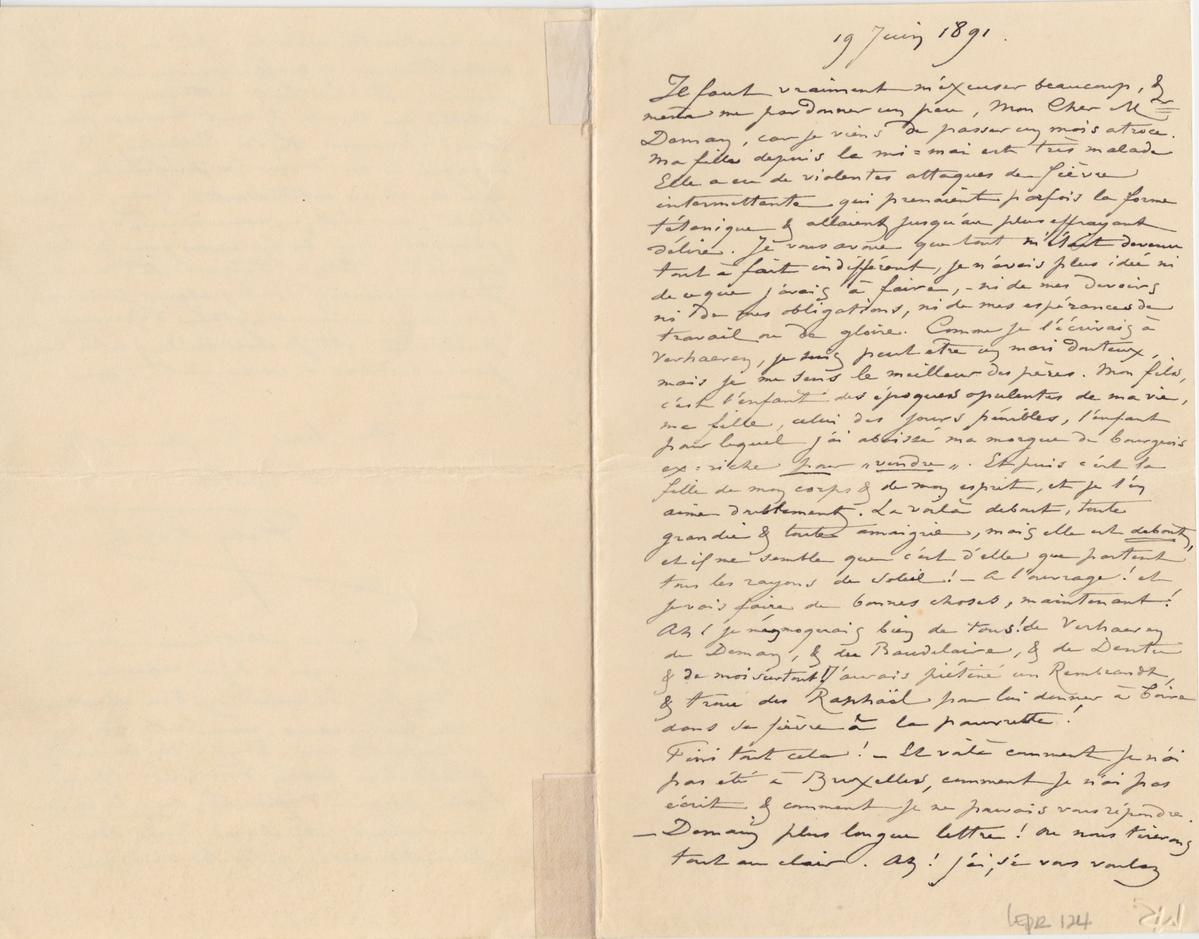 19 Juin 1891.
Il faut vraiment m'excuser beaucoup, &
même me pardonner un peu, Mon Cher Mr
Deman, car je viens de passer un mois atroce.
Ma fille depuis la mi=mai est très malade
Elle a eu de violentes attaques de fièvre
intermittente qui prenaient parfois la forme
tétanique & allaient jusqu'au plus effrayant
délire. Je vous avoue que tout m'était devenu
tout à fait indifférent, je n'avais plus idée ni
de ce que j'avais à faire, - ni de mes devoirs
ni de mes obligations, ni de mes espérances de
travail ou de gloire. Comme je l'écrivais à
Verhaeren, je suis peut être un mari douteux,
mais je me sens le meilleur des pères. Mon fils,
c'est l'enfant des époques opulentes de ma vie,
ma fille, celui des jours pénibles, l'enfant
pour lequel j'ai abaissé ma morgue de bourgeois
ex=riche pour "vendre". Et puis c'est la
fille de mon corps & de mon esprit, et je l'en
aime doublement. La voilà debout, toute
grandie & toute amaigrie, mais elle est debout,
et il me semble que c'est d'elle que partent
tous les rayons de soleil! — A l'ouvrage! et
je vais faire de bonnes choses, maintenant!
Ah! je m'en moquais bien de tous! de Verhaeren
de Deman, & de Baudelaire, & de Dentu
& de moi surtout! J'aurais piétiné un Rembrandt,
& troué des Raphaël pour lui donner à boire
dans sa fièvre à la pauvrette!
Fini tout cela! — Et voilà comment je n'ai
pas été à Bruxelles, comment je n'ai pas
écrit & comment je ne pouvais vous répondre.
— Demain plus longue lettre! où nous tirerons
tout au clair. Ah! j'ai, si vous voulez
LEpR 124